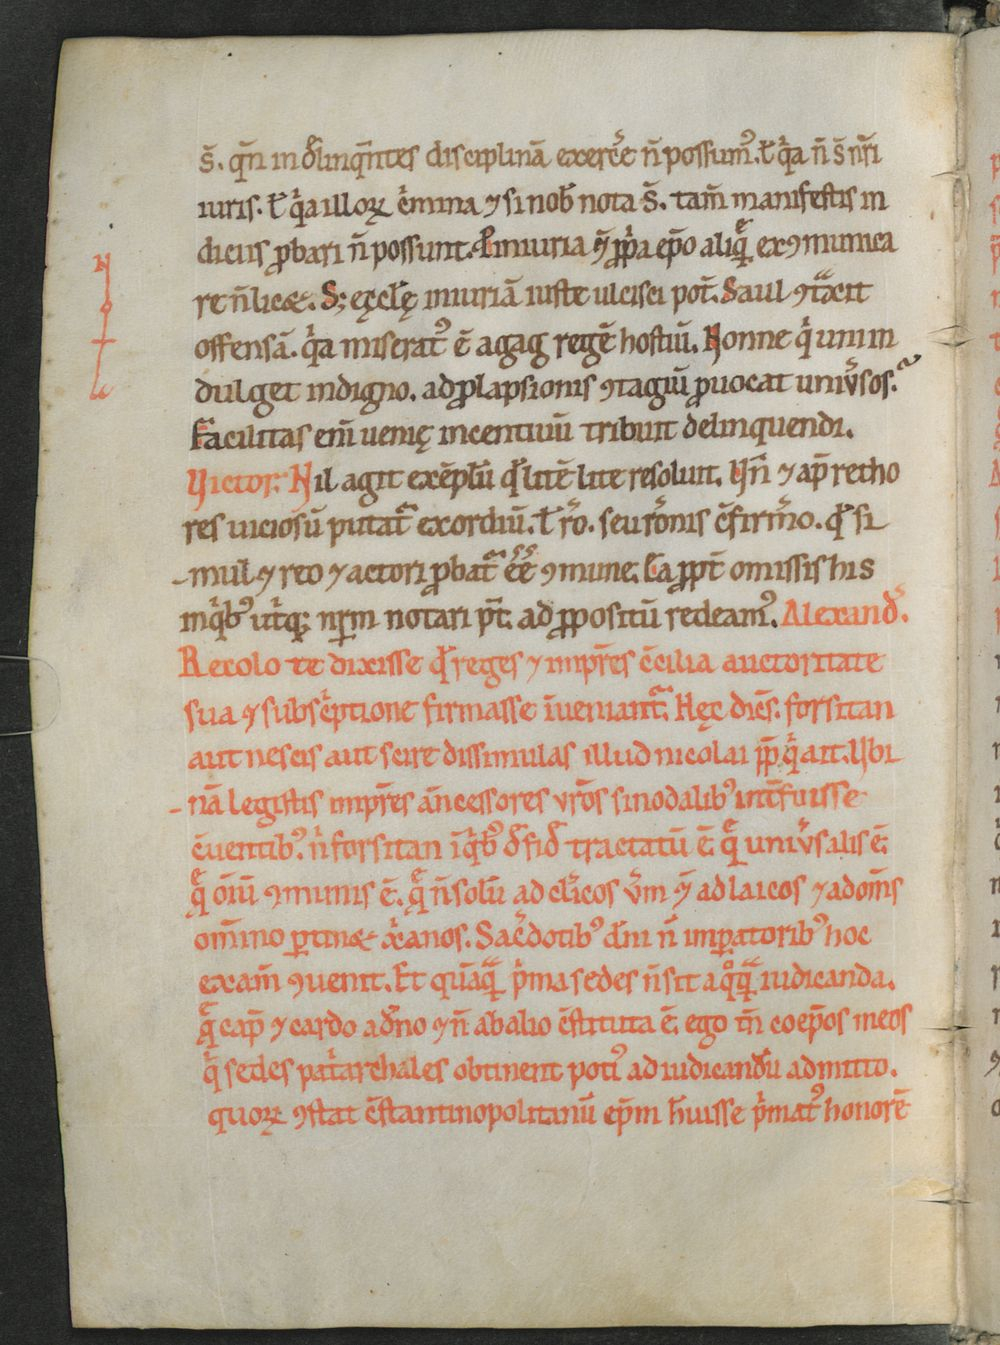 s̄. qn̄ in delinqn̄tes disciplinā exerc̄e n̄ possum᷒. ł qͥa n̄ s̄ nr̄i
iuris. ł qͥa illoꝝ cͥmina ⁊ si nob̄ nota s̄. tam̄ manifestis in
diciis ꝓbari n̄ possunt. Ꝑ iniuria ꝙ̄ ꝓpͥa ep̄o aliqͣ̄ exꝯmunica
re n̄ lic&. S; ęcclę̄ iniuriā iuste ulcisci pot̄. Saul ꝯtͣxit
offensā. qͥa miserat᷒ ē agag regē hostiū. Nonne qͥ unī in
dulget indigno. ad ꝓlapsionis ꝯtagiū ꝓuocat univ̓sos.
Facilitas eni᷒ uenię incentiuū tribuit delinquendi.
Victor. Nil agit exēplū qđ litē lite resoluit. Un̄ ⁊ ap̄ retho
res uiciosū putat᷑ exordiū. ł rō. seu rōnis cfirmō. qđ si
mul ⁊ reo ⁊ actori ꝓbat᷑ ēē ꝯmune. Ea ꝓpt̄ omissis his
inqͥb᷒ ut̓qꝫ nrm̄ notari pt̄. ad ꝓpositū redeam᷒. Alexand̓.
Recolo te dixisse qđ reges ⁊ impr̄es c̄cilia auctoritate
sua ⁊ subscͥptione firmasse īueniant᷑. Hęc dicēs. forsitan
aut nescis aut scire dissimulas illud nicolai pp̄ qͥ ait. Ubi
nā legistis impr̄es an̄cessores vr̄os sinodalib᷒ int̄fuisse
c̄uentib᷒. n̄ forsitan ī qͥb᷒ đ fiđ tractatū ē. qͣ̄ univ̓salis ē.
qͣ̄ oīū ꝯmunis ē. qͣ̄ n̄ solū ad cl̓icos v̓m ꝙ̄ ad laicos ⁊ ad om̄s
om̄ino ꝑtin& xͥanos. Sac̓dotib᷒ dn̄i n̄ impatorib᷒ hoc
exam̄ ꝯuenit. Et quāqͣ̄ pͥma sedes n̄ sit a qͦqͣ̄ iudicanda.
qͣ̄ cap̄ ⁊ cardo a dn̄o ⁊ n̄ ab alio c̄stituta ē. ego tn̄ coep̄os meos
qͥ sedes patͥarchales obtinent poti᷒ ad iudicandū admitto.
quoꝝ ꝯstat c̄stantinopolitanū ep̄m h̄uisse pͥmat᷒ honorē